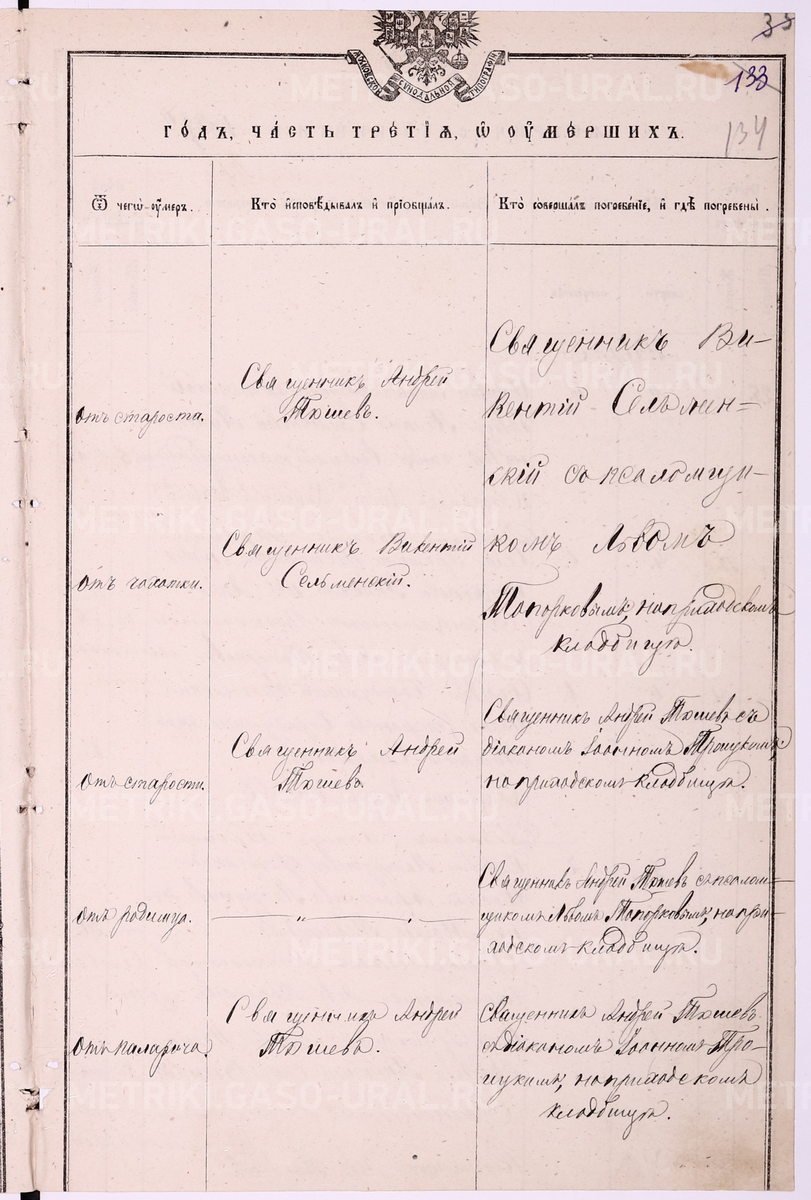 33
133
134
МОСКОВСКОЙ СѴНОДАЛЬНОЙ ТИПОГРАФІИ
ГО́ДЪ, ЧА́СТЬ ТРЕ́ТІѦ, Ѡ҆ ОУ҆МЕ́РШИХЪ.
Ѿ чегѡ̀ оу҆́меръ.
Кто̀ и҆сповѣ́дывалъ и҆ прїѡбща́лъ.
Кто̀ соверша́лъ погребе́нїе, и҆ гдѣ̀ погребены̀.
отъ староста.
Священникъ Андрей
Тюшевъ.
Священникъ Ви-
кентій Сельмен-
скій съ псаломщи-
комъ Львомъ
Топорковымъ, на приходскомъ
кладбищѣ.
отъ чахотки.
Священникъ Викентій
Сельменскій.
отъ старости.
Священникъ Андрей
Тюшевъ.
Священникъ Андрей Тюшевъ съ
діакономъ Іоанномъ Троицкимъ,
на приходскомъ кладбищѣ.
отъ родимца.
„ „
Священникъ Андрей Тюшевъ съ псалом-
щикомъ Львомъ Топорковымъ, на при-
ходскомъ кладбищѣ.
Священникъ Андрей
Тюшевъ.
Священникъ Андрей Тюшевъ
съ діакономъ Іоанномъ Тро-
ицкимъ, на приходскомъ
кладбищѣ.
METRIKI.GASO-URAL.RU